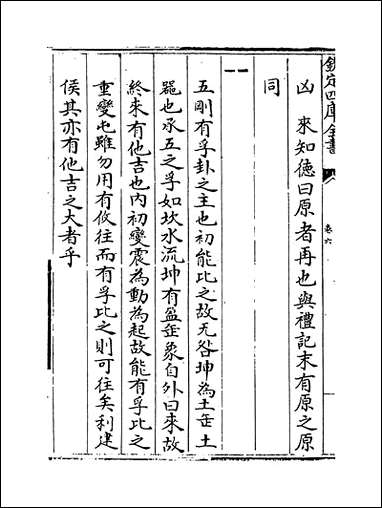 欽定四庫全書
卷六
凶　來知德曰原者再也與禮記末有原之原
同
五剛有孚卦之主也初能比之故无咎坤為土缶土
器也承五之孚如坎水流坤有盈缶象自外曰來故
終來有他吉也内初變震為動為起故能有孚比之
重變屯雖勿用有攸往而有孚比之則可往矣利建
侯其亦有他吉之大者乎